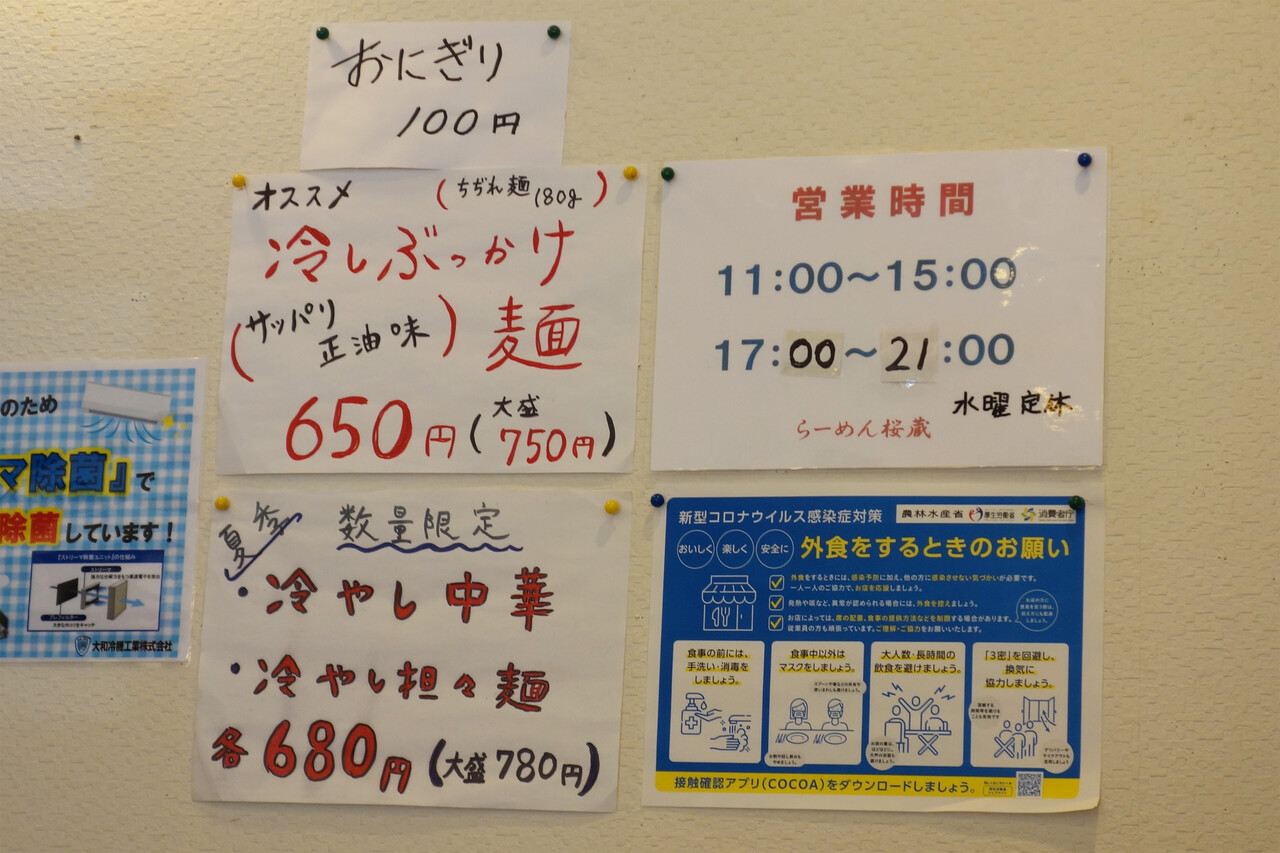 おにぎり
100円
オススメ (ちぢれ麺180g)
冷しぶっかけ
(サッパリ正油味)麺
650円(大盛750円)
夏季 数量限定
・冷やし中華
・冷やし担々麺
各680円(大盛780円)
営業時間
11:00〜15:00
17:00〜21:00
水曜定休
らーめん桜蔵
のため
マ除菌』で
除菌しています!
『ストリーマ除菌ユニット』の仕組み
ストリーマ
プレフィルター
大和冷機工業株式会社
新型コロナウイルス感染症対策 農林水産省 厚生労働省 消費者庁
おいしく 楽しく 安全に 外食をするときのお願い
外食をするときには、感染予防に加え、他の方に感染させない気づかいが必要です。
一人一人のご協力で、お店を応援しましょう。
発熱や咳など、異常が認められる場合には、外食を控えましょう。
お店によっては、席の配置、食事の提供方法などを制限する場合があります。
従業員の方も頑張っています。ご理解・ご協力をお願いいたします。
食事の前には、
手洗い・消毒を
しましょう。
食事中以外は
マスクをしましょう。
大人数・長時間の
飲食を避けましょう。
「3密」を回避し、
換気に
協力しましょう。
接触確認アプリ(COCOA)をダウンロードしましょう。